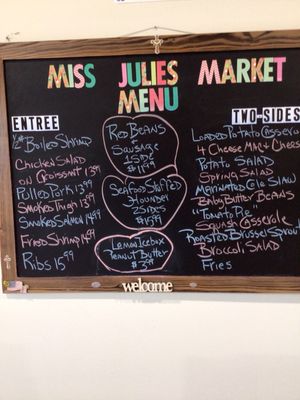 MISS JULIES MARKET
MENU
ENTREE
Boiled Shrimp
Chicken Salad
on Croissant 13.99
Pulled Pork 13.99
Smoked Thigh 13.99
Smoked Salmon 14.99
Fried Shrimp 14.99
Ribs 15.99
Red Beans
+
Sausage
1 Side
Seafood Stuffed
Flounder
2 Sides
Lemon Icebox
Peanut Butter
$3.99
TWO-SIDES
Loaded Potato Casserole
4 Cheese Mac + Cheese
Potato Salad
Spring Salad
Marinated Cole Slaw
Baby Butter Beans
"Tomato Pie"
Squash Casserole
Roasted Brussel Sprouts
Broccoli Salad
Fries
welcome